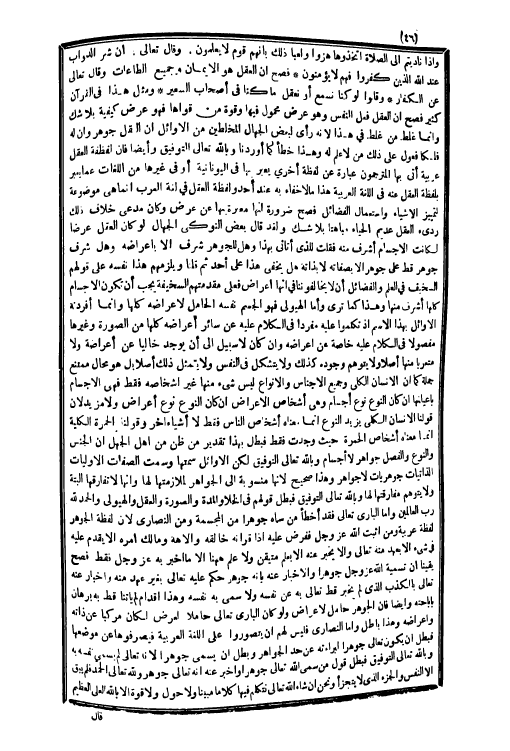 (٤٦)
واذا ناديتم الى الصلاة اتخذوها هزوا ولعبا ذلك بانهم قوم لا يعقلون * وقال تعالى * ان شر الدواب
عند الله الذين كفروا فهم لا يؤمنون * فصح ان العقل هو الايمان وجميع الطاعات وقال تعالى
عن الكفار * وقالوا لو كنا نسمع أو نعقل ما كنا في أصحاب السعير * ومثل هذا في القرآن
كثير فصح ان العقل فعل النفس وهو عرض محمول فيها وقوة من قواها فهو عرض كيفية بلا شك
وانما غلط من غلط في هذا لانه رأى لبعض الجهال المخلطين من الاوائل ان العقل جوهر وان له
فلكا فعول على ذلك من لا علم له وهذا خطأ كما أوردنا وبالله تعالى التوفيق وأيضا فان لفظة العقل
عربية أتى بها المترجمون عبارة عن لفظة أخرى يعبر بها في اليونانية أو في غيرها من اللغات عما يعبر
بلفظة العقل عنه في اللغة العربية هذا ما لا خفاء به عند أحد ولفظة العقل في لغة العرب انما هي موضوعة
لتمييز الاشياء واستعمال الفضائل فصح ضرورة انها معبر بها عن عرض وكان مدعى خلاف ذلك
ردىء العقل عديم الحياء مباهتا بلا شك ولقد قال بعض النوكى الجهال لو كان العقل عرضا
لكانت الاجسام أشرف منه فقلت للذى أتانى بهذا وهل للجوهر شرف الا باعراضه وهل شرف
جوهر قط على جوهر الا بصفاته لا بذاته هل يخفى هذا على أحد ثم قلنا ويلزمهم هذا نفسه على قولهم
السخيف في العلم والفضائل أن لا يخالفوننا في انها أعراض فعلى مقدمتهم السخيفة يجب أن تكون الاجسام
كلها أشرف منها وهذا كما ترى وأما الهيولى فهو الجسم نفسه الحامل لاعراضه كلها وانما أفردته
الاوائل بهذا الاسم اذ تكلموا عليه مفردا في الكلام عليه عن سائر أعراضه كلها من الصورة وغيرها
مفصولا في الكلام عليه خاصة عن اعراضه وان كان لا سبيل الى أن يوجد خاليا عن أعراضه ولا
متعريا منها أصلا ولا يتوهم وجوده كذلك ولا يتشكل في النفس ولا يتمثل ذلك أصلا بل هو محال ممتنع
جملة كما ان الانسان الكلى وجميع الاجناس والانواع ليس شىء منها غير اشخاصه فقط فهي الاجسام
باعيانها ان كان النوع نوع أجسام وهي أشخاص الاعراض ان كان النوع نوع أعراض ولا مزيد لان
قولنا الانسان الكلى يزيد النوع انما معناه أشخاص الناس فقط لا أشياء اخر وقولنا الحمرة الكلية
انما معناه أشخاص الحمرة حيث وجدت فقط فبطل بهذا تقدير من ظن من أهل الجهل ان الجنس
والنوع والفصل جواهر لا أجسام وبالله تعالى التوفيق لكن الاوائل سمتها وسمت الصفات الاوليات
الذاتيات جوهريات لا جواهر وهذا صحيح لانها منسوبة الى الجواهر لملازمتها لها وانها لا تفارقها البتة
ولا يتوهم مفارقتها لها وبالله تعالى التوفيق فبطل قولهم في الخلا والمدة والصورة والعقل والهيولى والحمد لله
رب العالمين وأما البارى تعالى فقد أخطأ من سماه جوهرا من المجسمة ومن النصارى لان لفظة الجوهر
لفظة عربية ومن اثبت الله عز وجل ففرض عليه اذا قر انه خالقه والاهه ومالك امره الا يقدم عليه
في شىء الا بعهد منه تعالى ولا يخبر عنه الا بعلم متيقن ولا علم ههنا الا ما اخبر به عز وجل فقط فصح
يقينا ان تسمية الله عز وجل جوهرا والاخبار عنه بانه جوهر حكم عليه تعالى بغير عهد منه واخبار عنه
تعالى بالكذب الذى لم يخبر قط تعالى به عن نفسه ولا سمى به نفسه وهذا اقدام لم ياتنا قط به برهان
باباحته وايضا فان الجوهر حامل لاعراض ولو كان البارى تعالى حاملا لعرض لكان مركبا من ذاته
واعراضه وهذا باطل واما النصارى فليس لهم ان يتصوروا على اللغة العربية فيصرفوها عن موضعها
فبطل ان يكون تعالى جوهرا لبراءته عن حد الجوهر وبطل ان يسمى جوهرا لانه تعالى لم يسمى نفسه به
وبالله تعالى التوفيق فبطل قول من سمى الله تعالى جوهرا واخبر عنه انه تعالى جوهر ولله تعالى الحمد فلم يبق
الا النفس والجزء الذى لا يتجزأ ونحن ان شاء الله تعالى نتكلم فيها كلاما مبينا ولا حول ولا قوة الا بالله العلى العظيم
قال